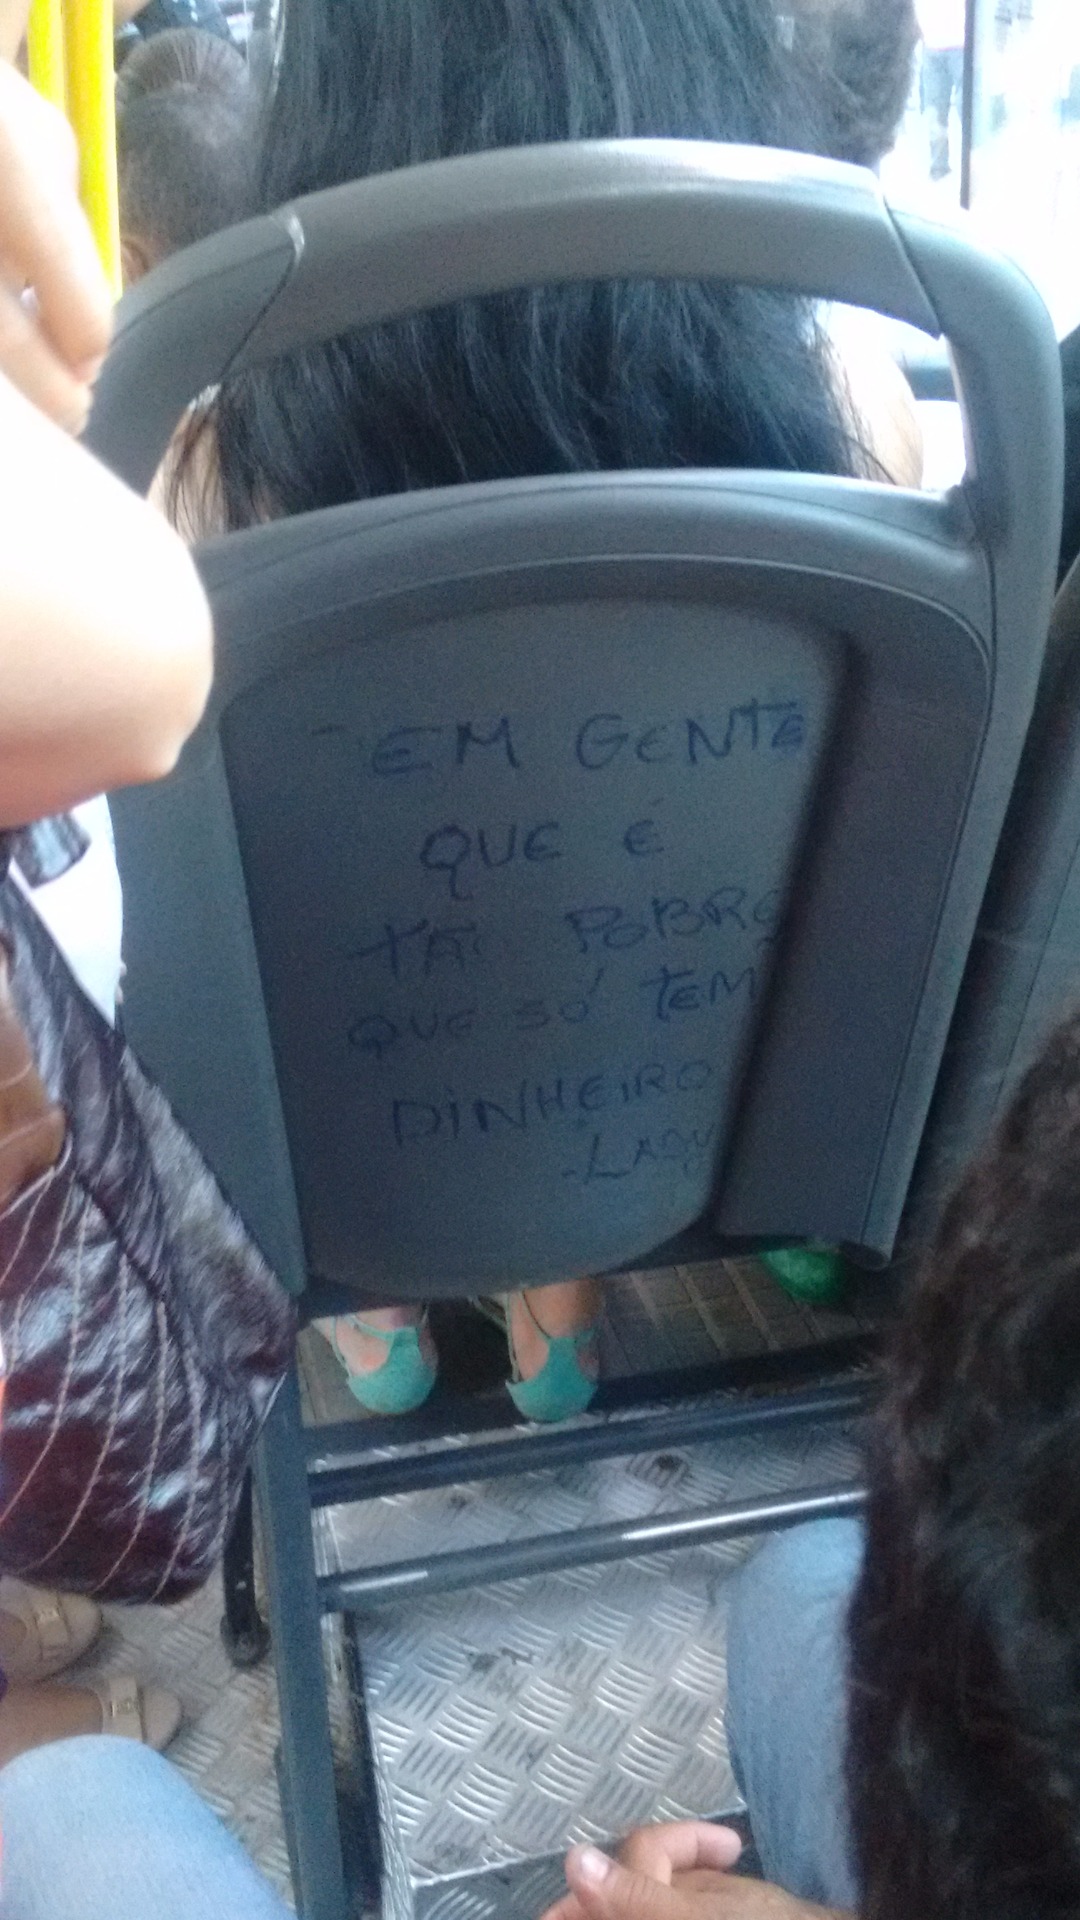 TEM GENTE
QUE É
TÃO POBRE
QUE SÓ TEM
DINHEIRO